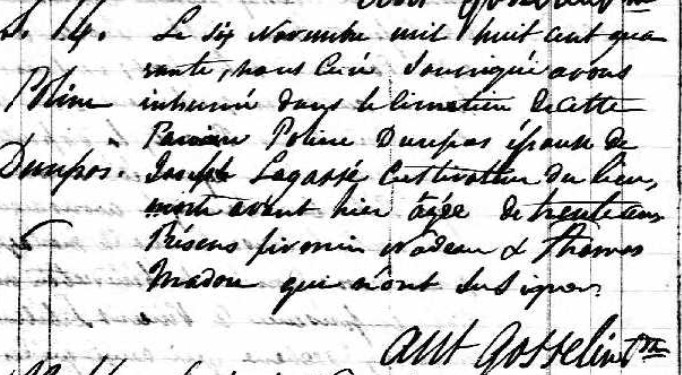 S. 14.
Poline
Dumpos.
Le six Novembre mil huit cent qua
rante, nous Curé soussigné avons
inhumé dans le cimetière de cette
Paroisse Poline Dumpos épouse de
Joseph Lagassé Cultivateur du lieu,
morte avant hier âgée de trente ans
Présens firmin Nadeau & Thomas
Nadou qui n'ont su signer.
Ant Gosselin Ptre